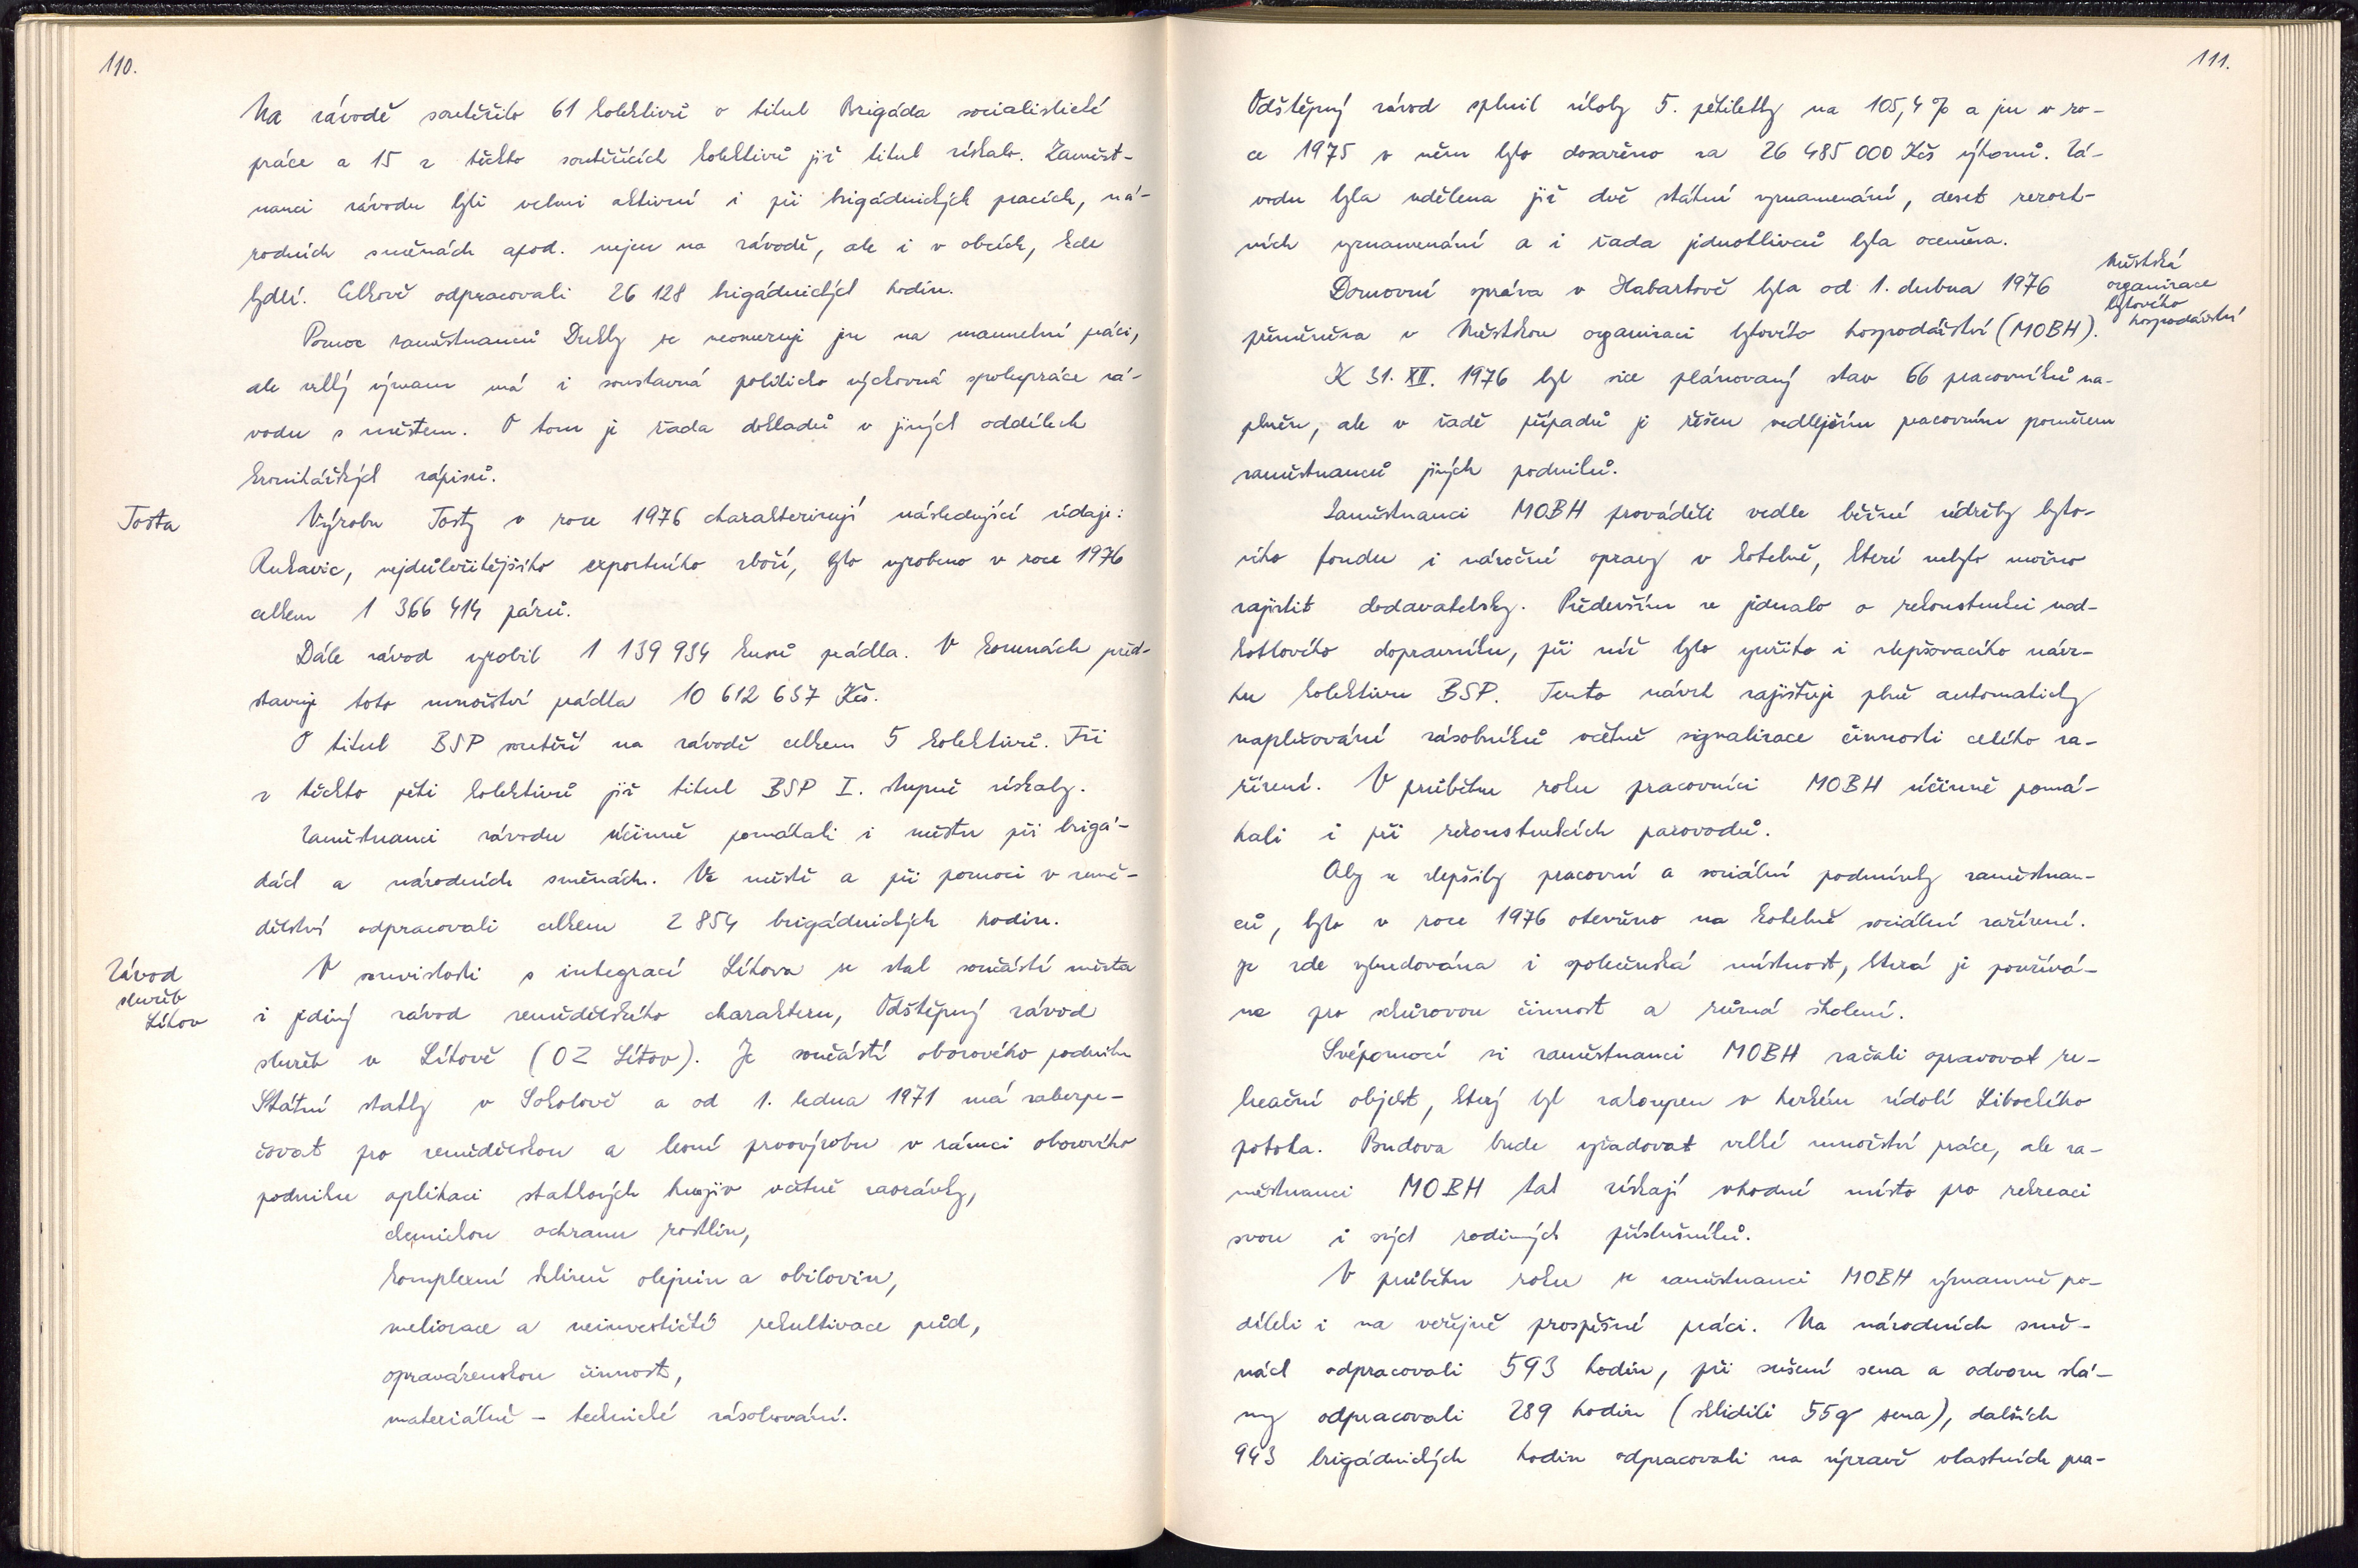 110.
Na závodě soutěžilo 61 kolektivů o titul Brigáda socialistické
práce a 15 z těchto soutěžících kolektivů již titul získalo. Zaměst-
nanci závodu byli velmi aktivní i při brigádnických pracích, ná-
rodních směnách apod. nejen na závodě, ale i v obcích, kde
bydlí. Celkově odpracovali 26 128 brigádnických hodin.
Pomoc zaměstnanců Dukly se neomezuje jen na manuelní práci,
ale velký význam má i soustavná politicko výchovná spolupráce zá-
vodu s městem. O tom je řada dokladů v jiných oddílech
kronikářských zápisů.
Tosta
Výrobu Tosty v roce 1976 charakterizují následující údaje:
Rukavic, nejdůležitějšího exportního zboží, bylo vyrobeno v roce 1976
celkem 1 366 414 párů.
Dále závod vyrobil 1 139 934 kusů prádla. V korunách před-
stavuje toto množství prádla 10 612 637 Kčs.
O titul BSP soutěží na závodě celkem 5 kolektivů. Tři
z těchto pěti kolektivů již titul BSP I. stupně získaly.
Zaměstnanci závodu účinně pomáhali i městu při brigá-
dách a národních směnách. Ve městě a při pomoci v země-
dělství odpracovali celkem 2 854 brigádnických hodin.
Závod
služeb
Lítov
V souvislosti s integrací Lítova se stal součástí města
i jediný závod zemědělského charakteru, Odštěpný závod
služeb v Lítově (OZ Lítov). Je součástí oborového podniku
Státní statky v Sokolově a od 1. ledna 1971 má zabezpe-
čovat pro zemědělskou a lesní prvovýrobu v rámci oborového
podniku aplikaci statkových hnojiv včetně zaorávky,
chemickou ochranu rostlin,
komplexní sklizeň olejnin a obilovin,
meliorace a neinvestiční rekultivace půd,
opravárenskou činnost,
materiálně - technické zásobování.
111.
Odštěpný závod splnil úkoly 5. pětiletky na 105,4 % a jen v ro-
ce 1975 v něm bylo dosaženo za 26 485 000 Kčs výkonů. Zá-
vodu byla udělena již dvě státní vyznamenání, deset rezort-
ních vyznamenání a i řada jednotlivců byla oceněna.
Městská
organizace
bytového
hospodářství
Domovní správa v Habartově byla od 1. dubna 1976
přeměněna v Městskou organizaci bytového hospodářství (MOBH).
K 31. XII. 1976 byl sice plánovaný stav 66 pracovníků na-
plněn, ale v řadě případů je řešen vedlejším pracovním poměrem
zaměstnanců jiných podniků.
Zaměstnanci MOBH prováděli vedle běžné údržby byto-
vého fondu i náročné opravy v kotelně, které nebylo možno
zajistit dodavatelsky. Především se jednalo o rekonstrukci nad-
kotlového dopravníku, při níž bylo využito i zlepšovacího návr-
hu kolektivu BSP. Tento návrh zajišťuje plně automaticky
naplňování zásobníků včetně signalizace činnosti celého za-
řízení. V průběhu roku pracovníci MOBH účinně pomá-
hali i při rekonstrukcích parovodů.
Aby se zlepšily pracovní a sociální podmínky zaměstnan-
ců, bylo v roce 1976 otevřeno na kotelně sociální zařízení.
Je zde vybudována i společenská místnost, která je používá-
na pro schůzovou činnost a různá školení.
Svépomocí si zaměstnanci MOBH začali opravovat re-
kreační objekt, který byl zakoupen v hezkém údolí Libockého
potoka. Budova bude vyžadovat velké množství práce, ale za-
městnanci MOBH tak získají vhodné místo pro rekreaci
svou i svých rodinných příslušníků.
V průběhu roku se zaměstnanci MOBH významně po-
díleli i na veřejně prospěšné práci. Na národních smě-
nách odpracovali 593 hodin, při sušení sena a odvozu slá-
my odpracovali 289 hodin (sklidili 55q sena), dalších
943 brigádnických hodin odpracovali na úpravě vlastních pra-